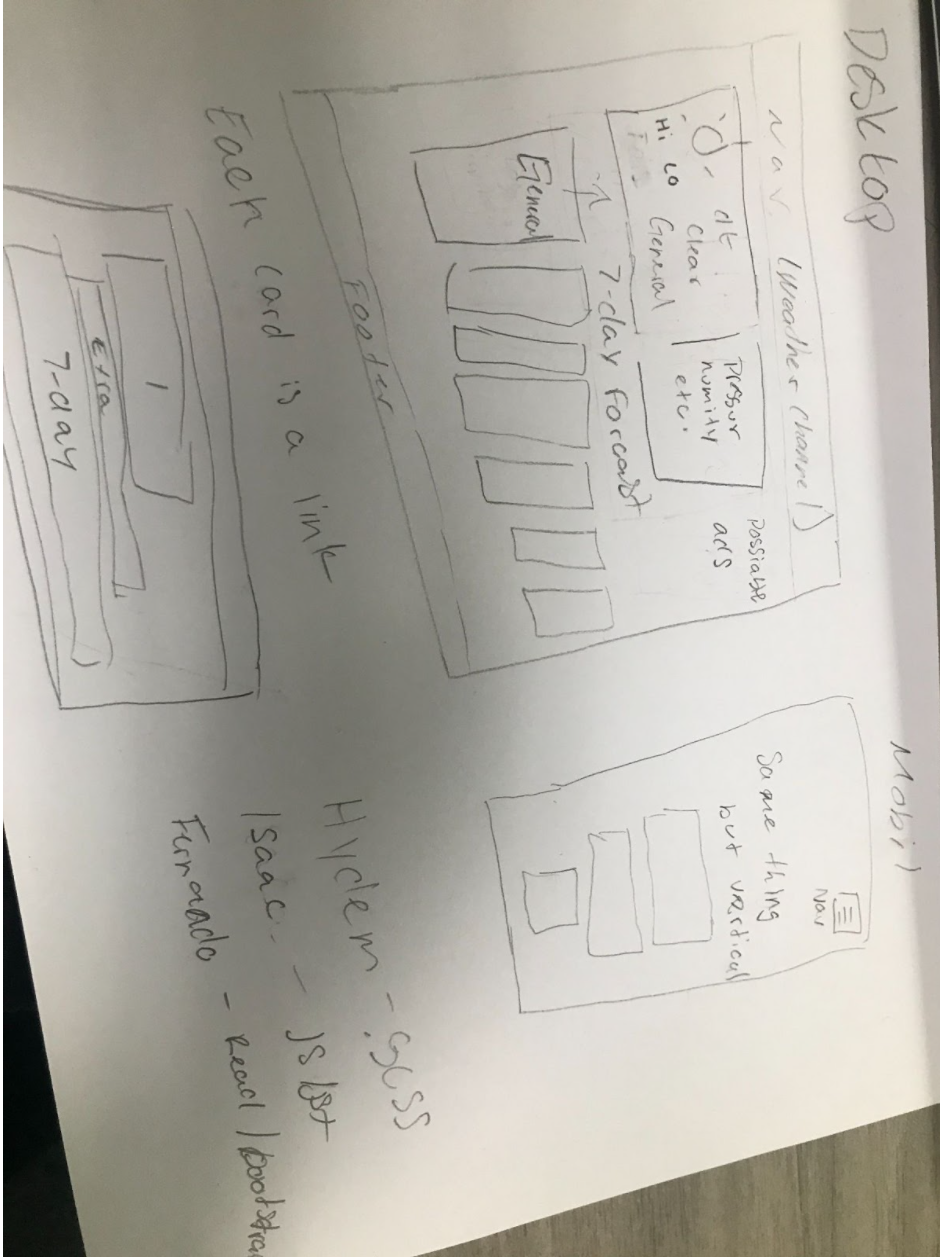 Desktop
Nav. (Weather Channel)
dt
clear
Hi Lo General
Pressur
humity
etc.
Possiable
ads
7-day Forcast
General
Footer
Each card is a link
1
Extra
7-day
Mobil
Nav
Same thing
but vertical
Hydem - .SCSS
Isaac - JS
Fernando - React / bootstrap